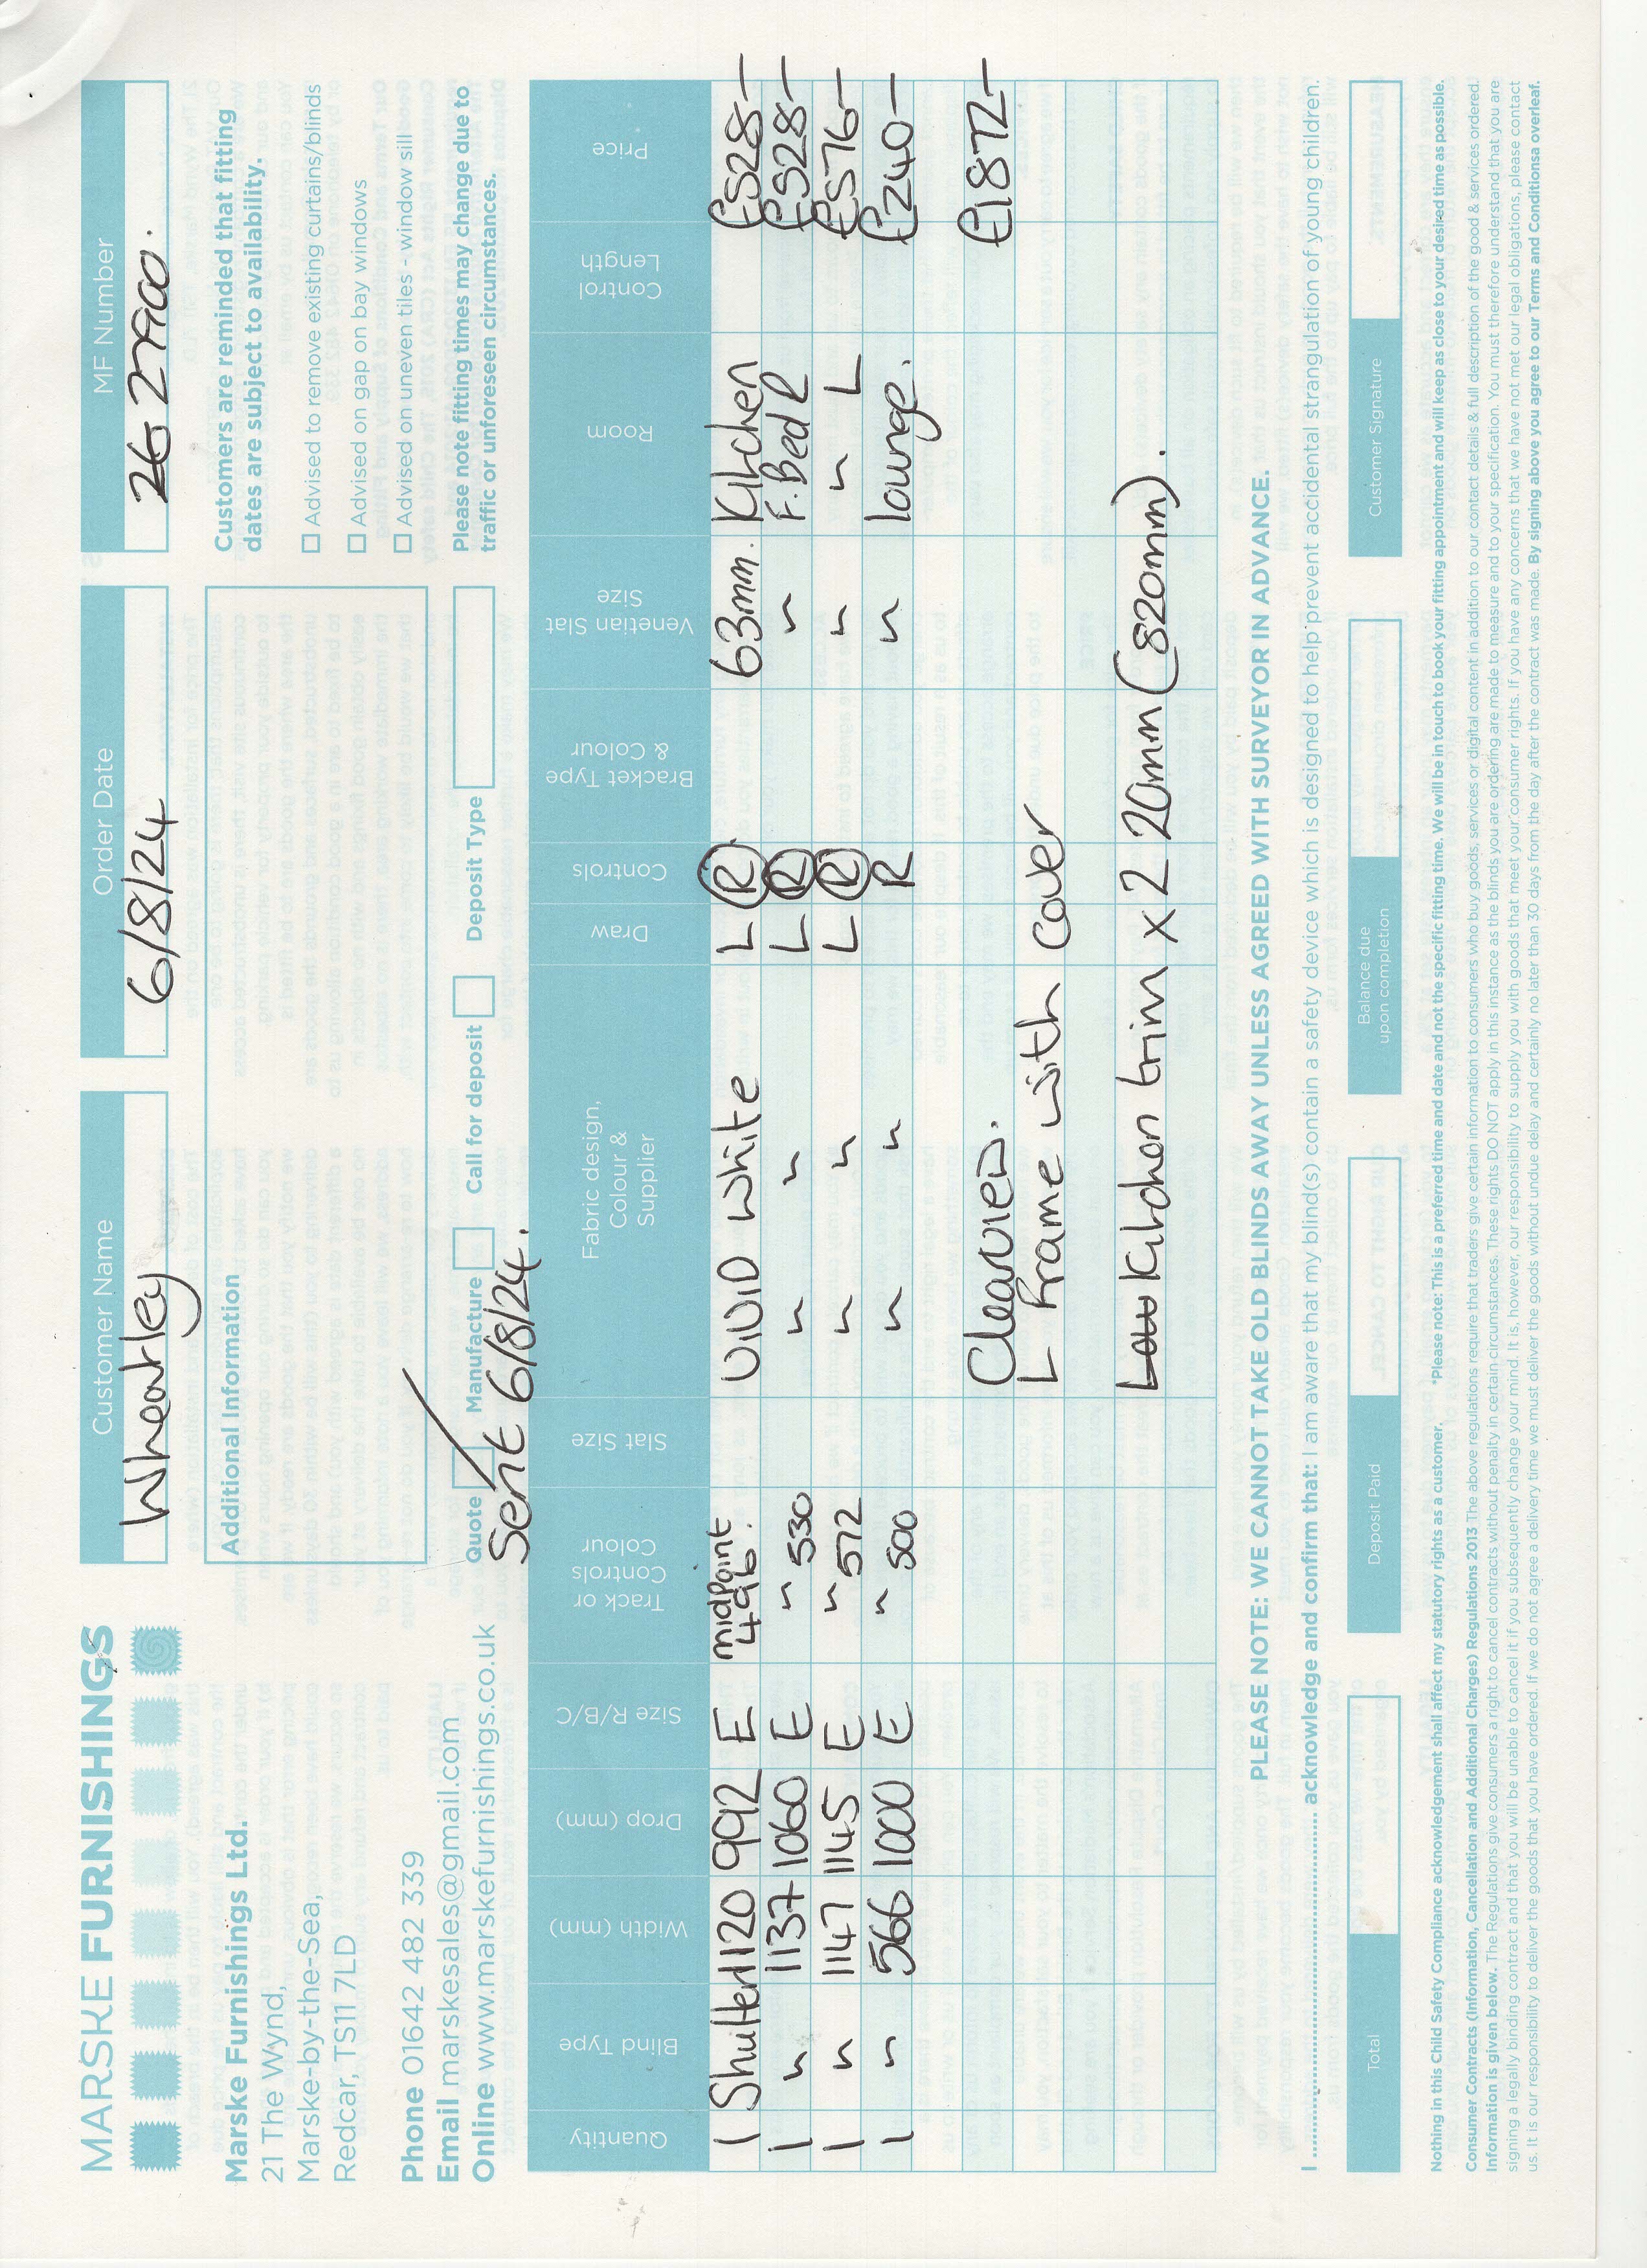 MARSKE FURNISHINGS
Marske Furnishings Ltd.
21 The Wynd,
Marske-by-the-Sea,
Redcar, TS11 7LD
Phone 01642 482 339
Email marskesales@gmail.com
Online www.marskefurnishings.co.uk
Customer Name
Wheatley
Order Date
6/8/24
MF Number
Additional Information
Quote
Manufacture
Call for deposit
Deposit Type
Sent 6/8/24.
Customers are reminded that fitting
dates are subject to availability.
Advised to remove existing curtains/blinds
Advised on gap on bay windows
Advised on uneven tiles - window sill
Please note fitting times may change due to
traffic or unforeseen circumstances.
Quantity Blind Type Width (mm) Drop (mm) Size R/B/C Track or Controls Colour Slat Size Fabric design, Colour & Supplier Draw Controls Bracket Type & Colour Venetian Slat Size Room Control Length Price
1 Shutter 1120 992 E midpoint 496. VIVID White L R 63mm. Kitchen £528-
1 " 1137 1060 E " 530 " " L R " F. Bed R £528-
1 " 1147 1145 E " 572 " " L R " " L £576-
1 " 566 1000 E " 500 " " R " lounge. £240-
Clearview. £1872-
L Frame with cover
Kitchen trim x2 20mm (820mm).
PLEASE NOTE: WE CANNOT TAKE OLD BLINDS AWAY UNLESS AGREED WITH SURVEYOR IN ADVANCE.
I .......................... acknowledge and confirm that: I am aware that my blind(s) contain a safety device which is designed to help prevent accidental strangulation of young children.
Total
Deposit Paid
Balance due upon completion
Customer Signature
Nothing in this Child Safety Compliance acknowledgement shall affect my statutory rights as a customer. *Please note: This is a preferred time and date and not the specific fitting time. We will be in touch to book your fitting appointment and will keep as close to your desired time as possible.
Consumer Contracts (Information, Cancellation and Additional Charges) Regulations 2013 The above regulations require that traders give certain information to consumers who buy goods, services or digital content in addition to our contact details & full description of the good & services ordered.
Information is given below. The Regulations give consumers a right to cancel contracts without penalty in certain circumstances. These rights DO NOT apply in this instance as the blinds you are ordering are made to measure and to your specification. You must therefore understand that you are
signing a legally binding contract and that you will be unable to cancel it if you subsequently change your mind. It is, however, our responsibility to supply you with goods that meet your consumer rights. If you have any concerns that we have not met our legal obligations, please contact
us. It is our responsibility to deliver the goods that you have ordered. If we do not agree a delivery time we must deliver the goods without undue delay and certainly no later than 30 days from the day after the contract was made. By signing above you agree to our Terms and Conditionsa overleaf.